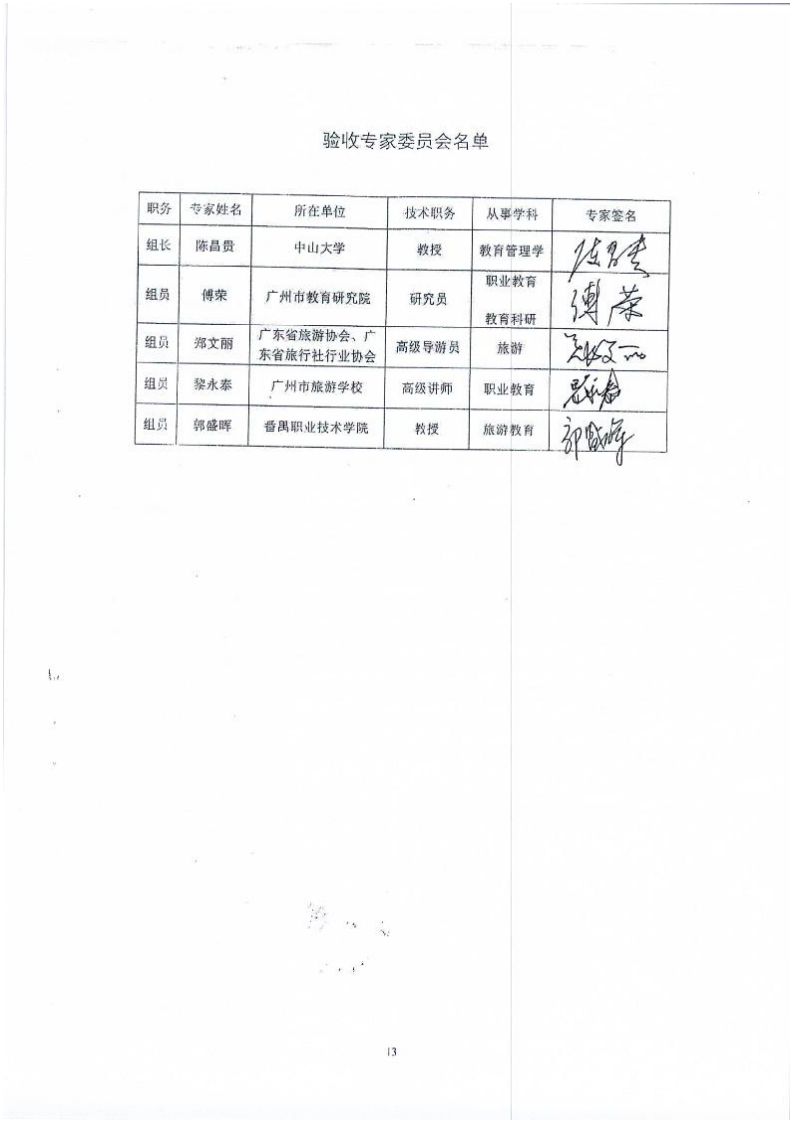 验收专家委员会名单
职务 专家姓名 所在单位 技术职务 从事学科 专家签名
组长 陈昌贵 中山大学 教授 教育管理学 陈昌贵
组员 傅荣 广州市教育研究院 研究员 职业教育 傅荣
教育科研
组员 郑文丽 广东省旅游协会、广 高级导游员 旅游
东省旅行社行业协会
组员 黎永泰 广州市旅游学校 高级讲师 职业教育
组员 郭盛晖 番禺职业技术学院 教授 旅游教育 郭盛晖
13